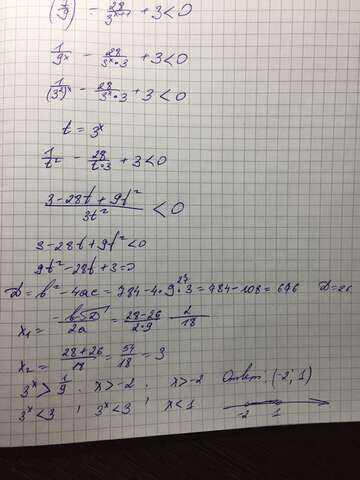 (1/9) - 28/3^(x+1) + 3 < 0
1/9^x - 28/(3^x · 3) + 3 < 0
1/(3²)^x - 28/(3^x · 3) + 3 < 0
t = 3^x
1/t² - 28/(t·3) + 3 < 0
(3 - 28t + 9t²)/(3t²) < 0
3 - 28t + 9t² < 0
9t² - 28t + 3 = 0
D = b² - 4ac = 784 - 4·9·3 = 784 - 108 = 676 D = 26
x₁ = (-b±√D)/2a = (28-26)/(2·9) = 2/18
x₂ = (28+26)/18 = 54/18 = 3
3^x > 1/9 , x > -2 , x > -2 Ответ. (-2; 1)
3^x < 3 , 3^x < 3 , x < 1 -2 1